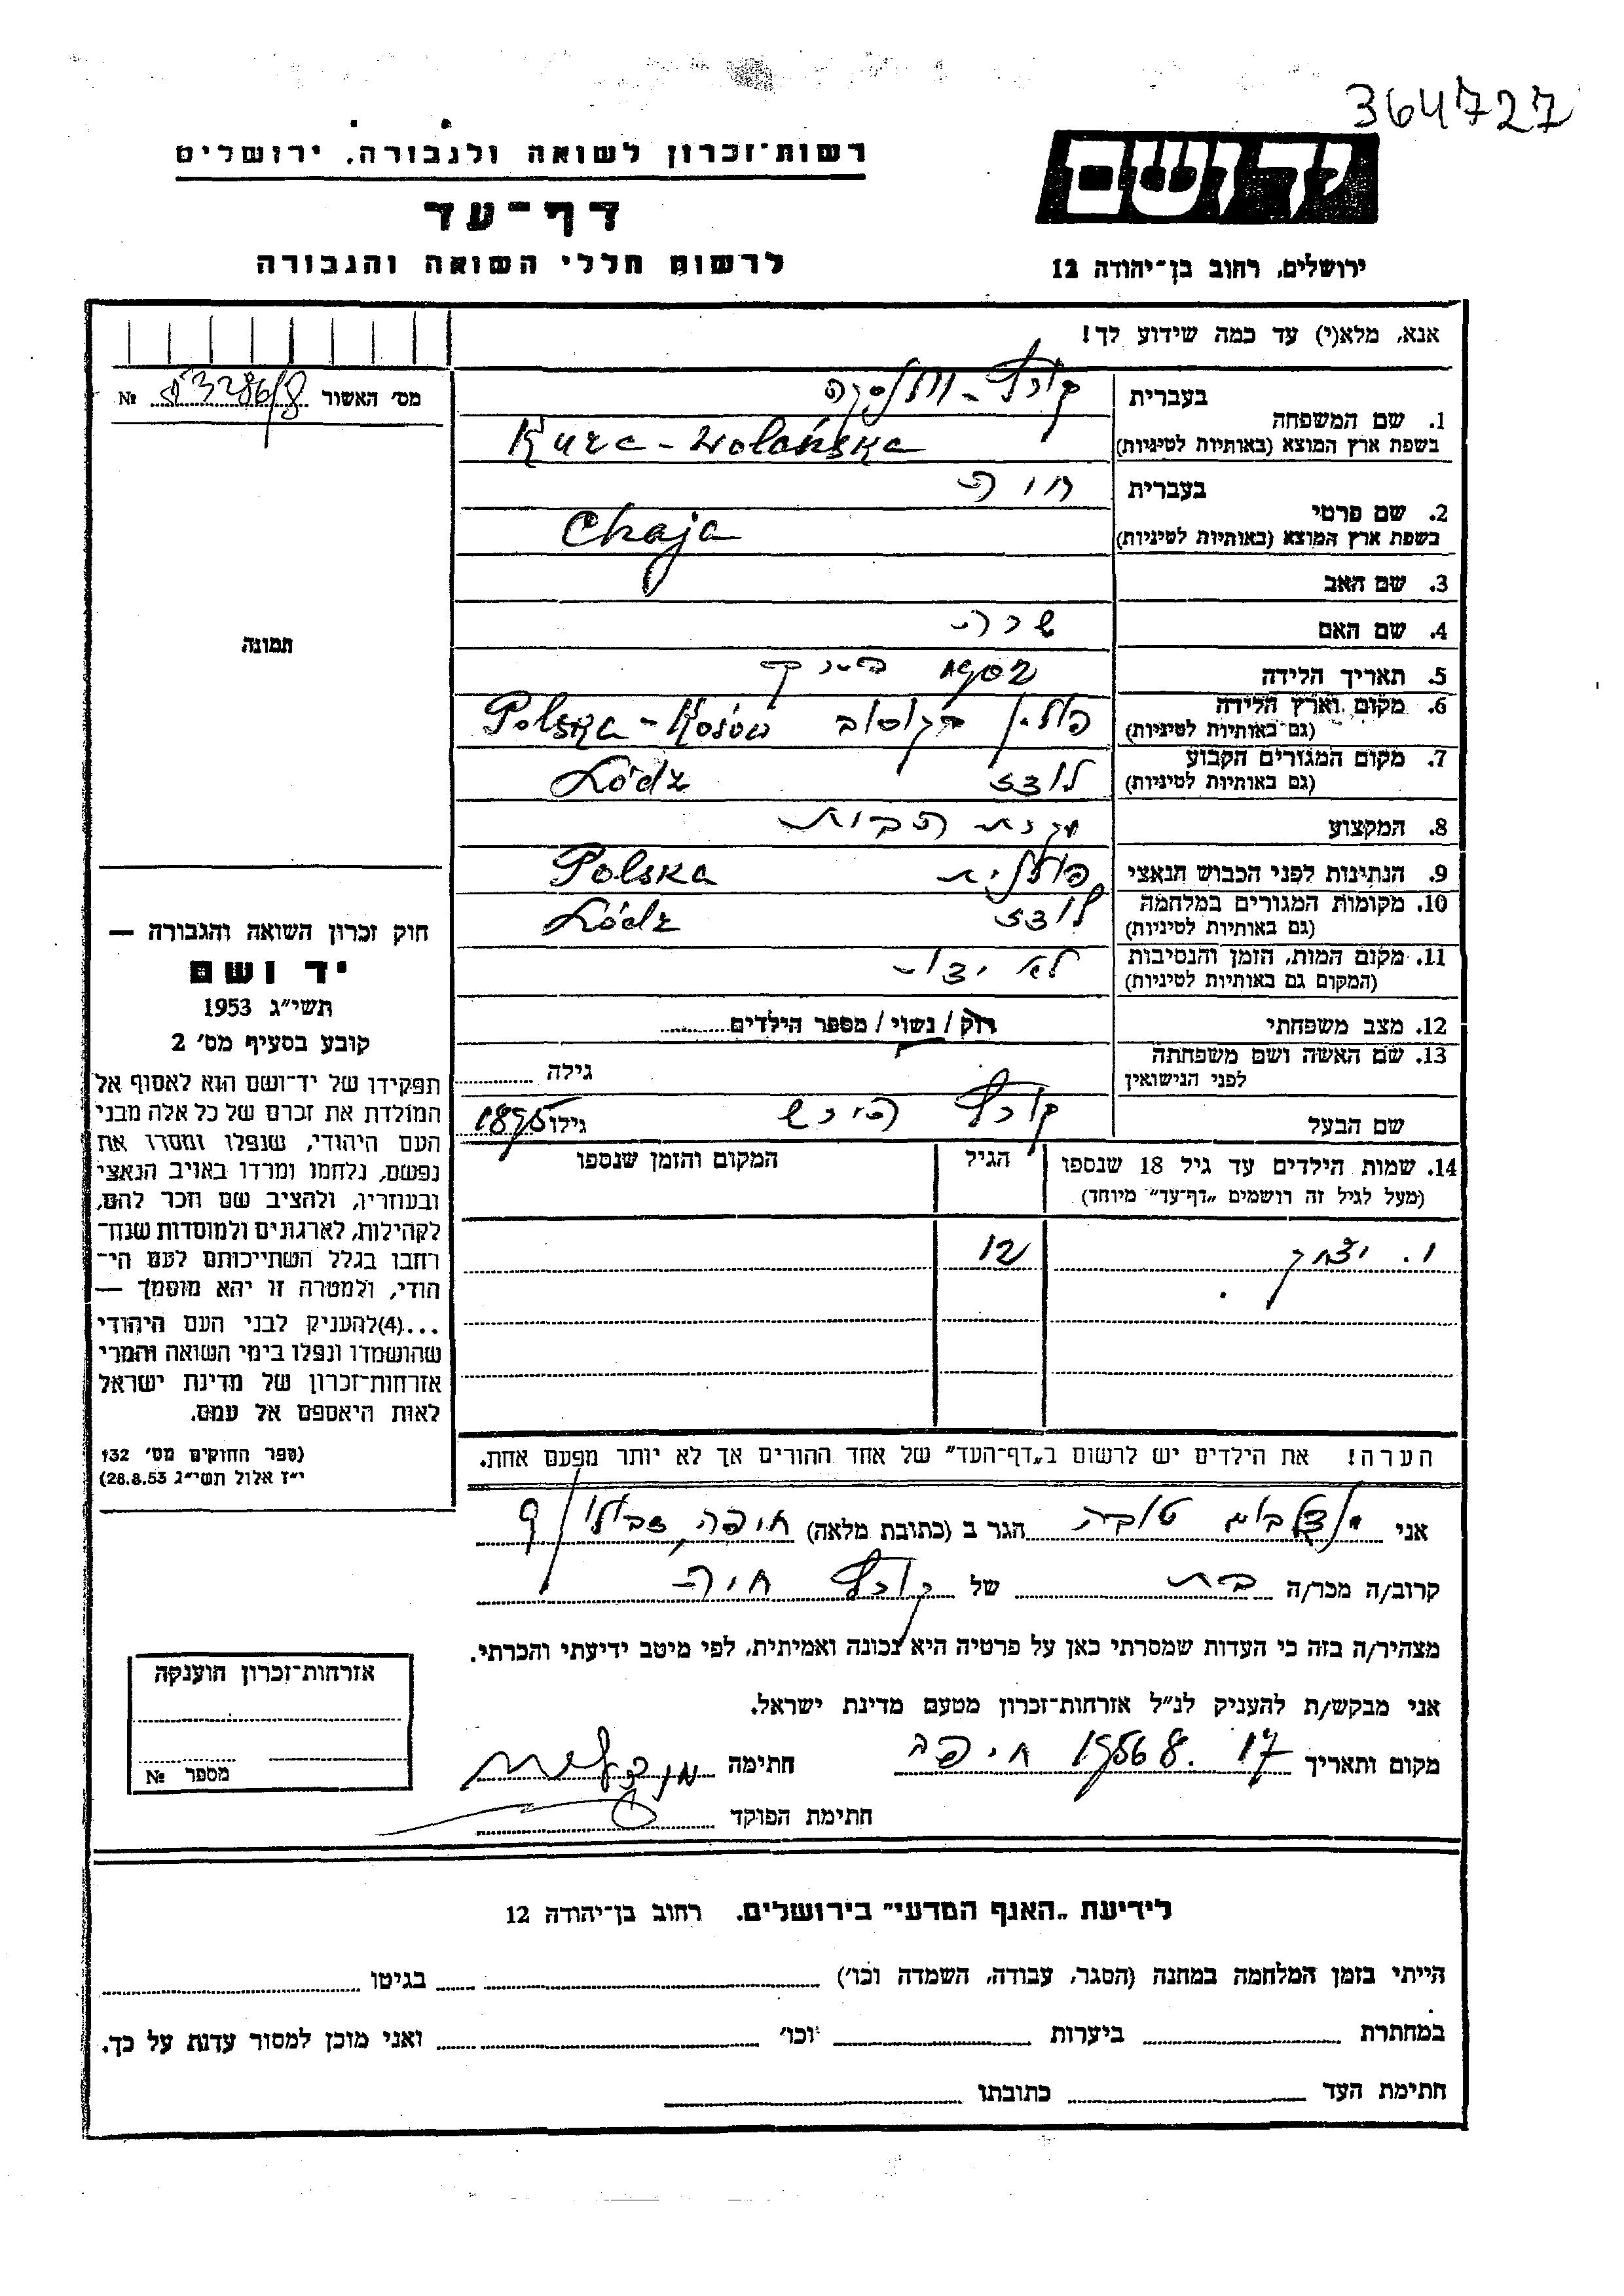 364727
יד ושם
ירושלים, רחוב בן־יהודה 12
רשות־זכרון לשואה ולגבורה, ירושלים
דף־עד
לרשום חללי השואה והגבורה
אנא, מלא(י) עד כמה שידוע לך!
מס' האשור № 3286/8
בעברית
1. שם המשפחה
בשפת ארץ המוצא (באותיות לטיניות) Kurc-Wolańska
בעברית חיה
2. שם פרטי
בשפת ארץ המוצא (באותיות לטיניות) Chaja
3. שם האב
4. שם האם שרה
5. תאריך הלידה 1902
6. מקום וארץ הלידה (גם באותיות לטיניות) פולין קוסוב Polska-Kosów
7. מקום המגורים הקבוע (גם באותיות לטיניות) לודז Łódz
8. המקצוע עקרת הבית
9. הנתינות לפני הכבוש הנאצי פולנית Polska
10. מקומות המגורים במלחמה (גם באותיות לטיניות) לודז Łódz
11. מקום המות, הזמן והנסיבות (המקום גם באותיות לטיניות) לא ידוע
12. מצב משפחתי רוק / נשוי / מספר הילדים
13. שם האשה ושם משפחתה לפני הנישואין גילה
שם הבעל קורץ הירש גילו 1895
14. שמות הילדים עד גיל 18 שנספו (מעל לגיל זה רושמים „דף־עד" מיוחד) הגיל המקום והזמן שנספו
1. יצחק 12
הערה! את הילדים יש לרשום ב„דף־העד" של אחד ההורים אך לא יותר מפעם אחת.
תמונה
חוק זכרון השואה והגבורה —
יד ושם
תשי״ג 1953
קובע בסעיף מס' 2
תפקידו של יד־ושם הוא לאסוף אל
המולדת את זכרם של כל אלה מבני
העם היהודי, שנפלו ומסרו את
נפשם, נלחמו ומרדו באויב הנאצי
ובעוזריו, ולהציב שם וזכר להם,
לקהילות, לארגונים ולמוסדות שנח־
רבו בגלל השתייכותם לעם הי־
הודי, ולמטרה זו יהא מוסמך —
...(4)להעניק לבני העם היהודי
שהושמדו ונפלו בימי השואה והמרי
אזרחות־זכרון של מדינת ישראל
לאות היאספם אל עמם.
(ספר החוקים מס' 132
י״ז אלול תשי״ג 28.8.53)
אני טובה הגר ב (כתובת מלאה) חיפה
קרוב/ה מכר/ה בת של קורץ חיה
מצהיר/ה בזה כי העדות שמסרתי כאן על פרטיה היא נכונה ואמיתית, לפי מיטב ידיעתי והכרתי.
אני מבקש/ת להעניק לנ״ל אזרחות־זכרון מטעם מדינת ישראל.
מקום ותאריך 17.8.1956 חיפה חתימה
חתימת הפוקד
אזרחות־זכרון הוענקה
מספר №
לידיעת „האגף המדעי" בירושלים, רחוב בן־יהודה 12
הייתי בזמן המלחמה במחנה (הסגר, עבודה, השמדה וכו') בגיטו
במחתרת ביערות וכו' ואני מוכן למסור עדות על כך.
חתימת העד כתובתו